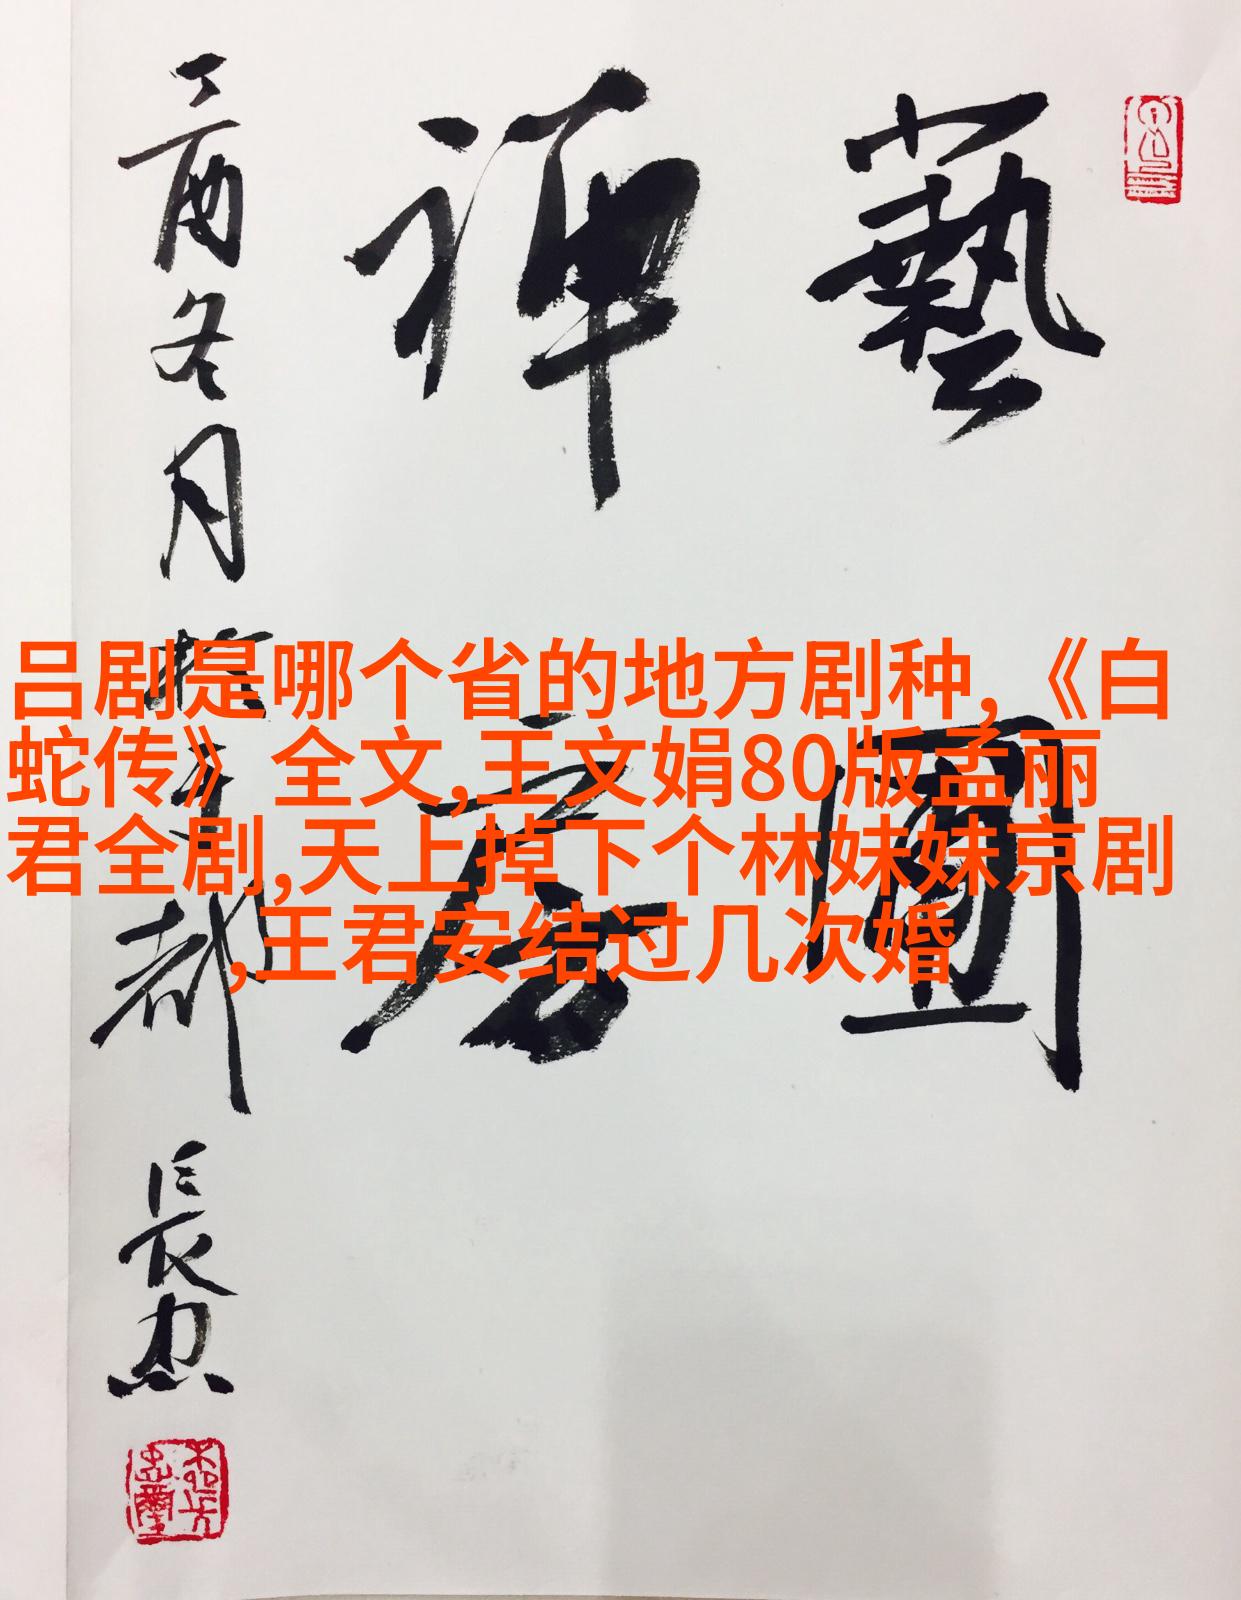 藝圃
禪房
丁酉冬月
於京都
長忠
吕剧是哪个省的地方剧种,《白
蛇传》全文,王文娟80版孟丽
君全剧,天上掉下个林妹妹京剧
,王君安结过几次婚